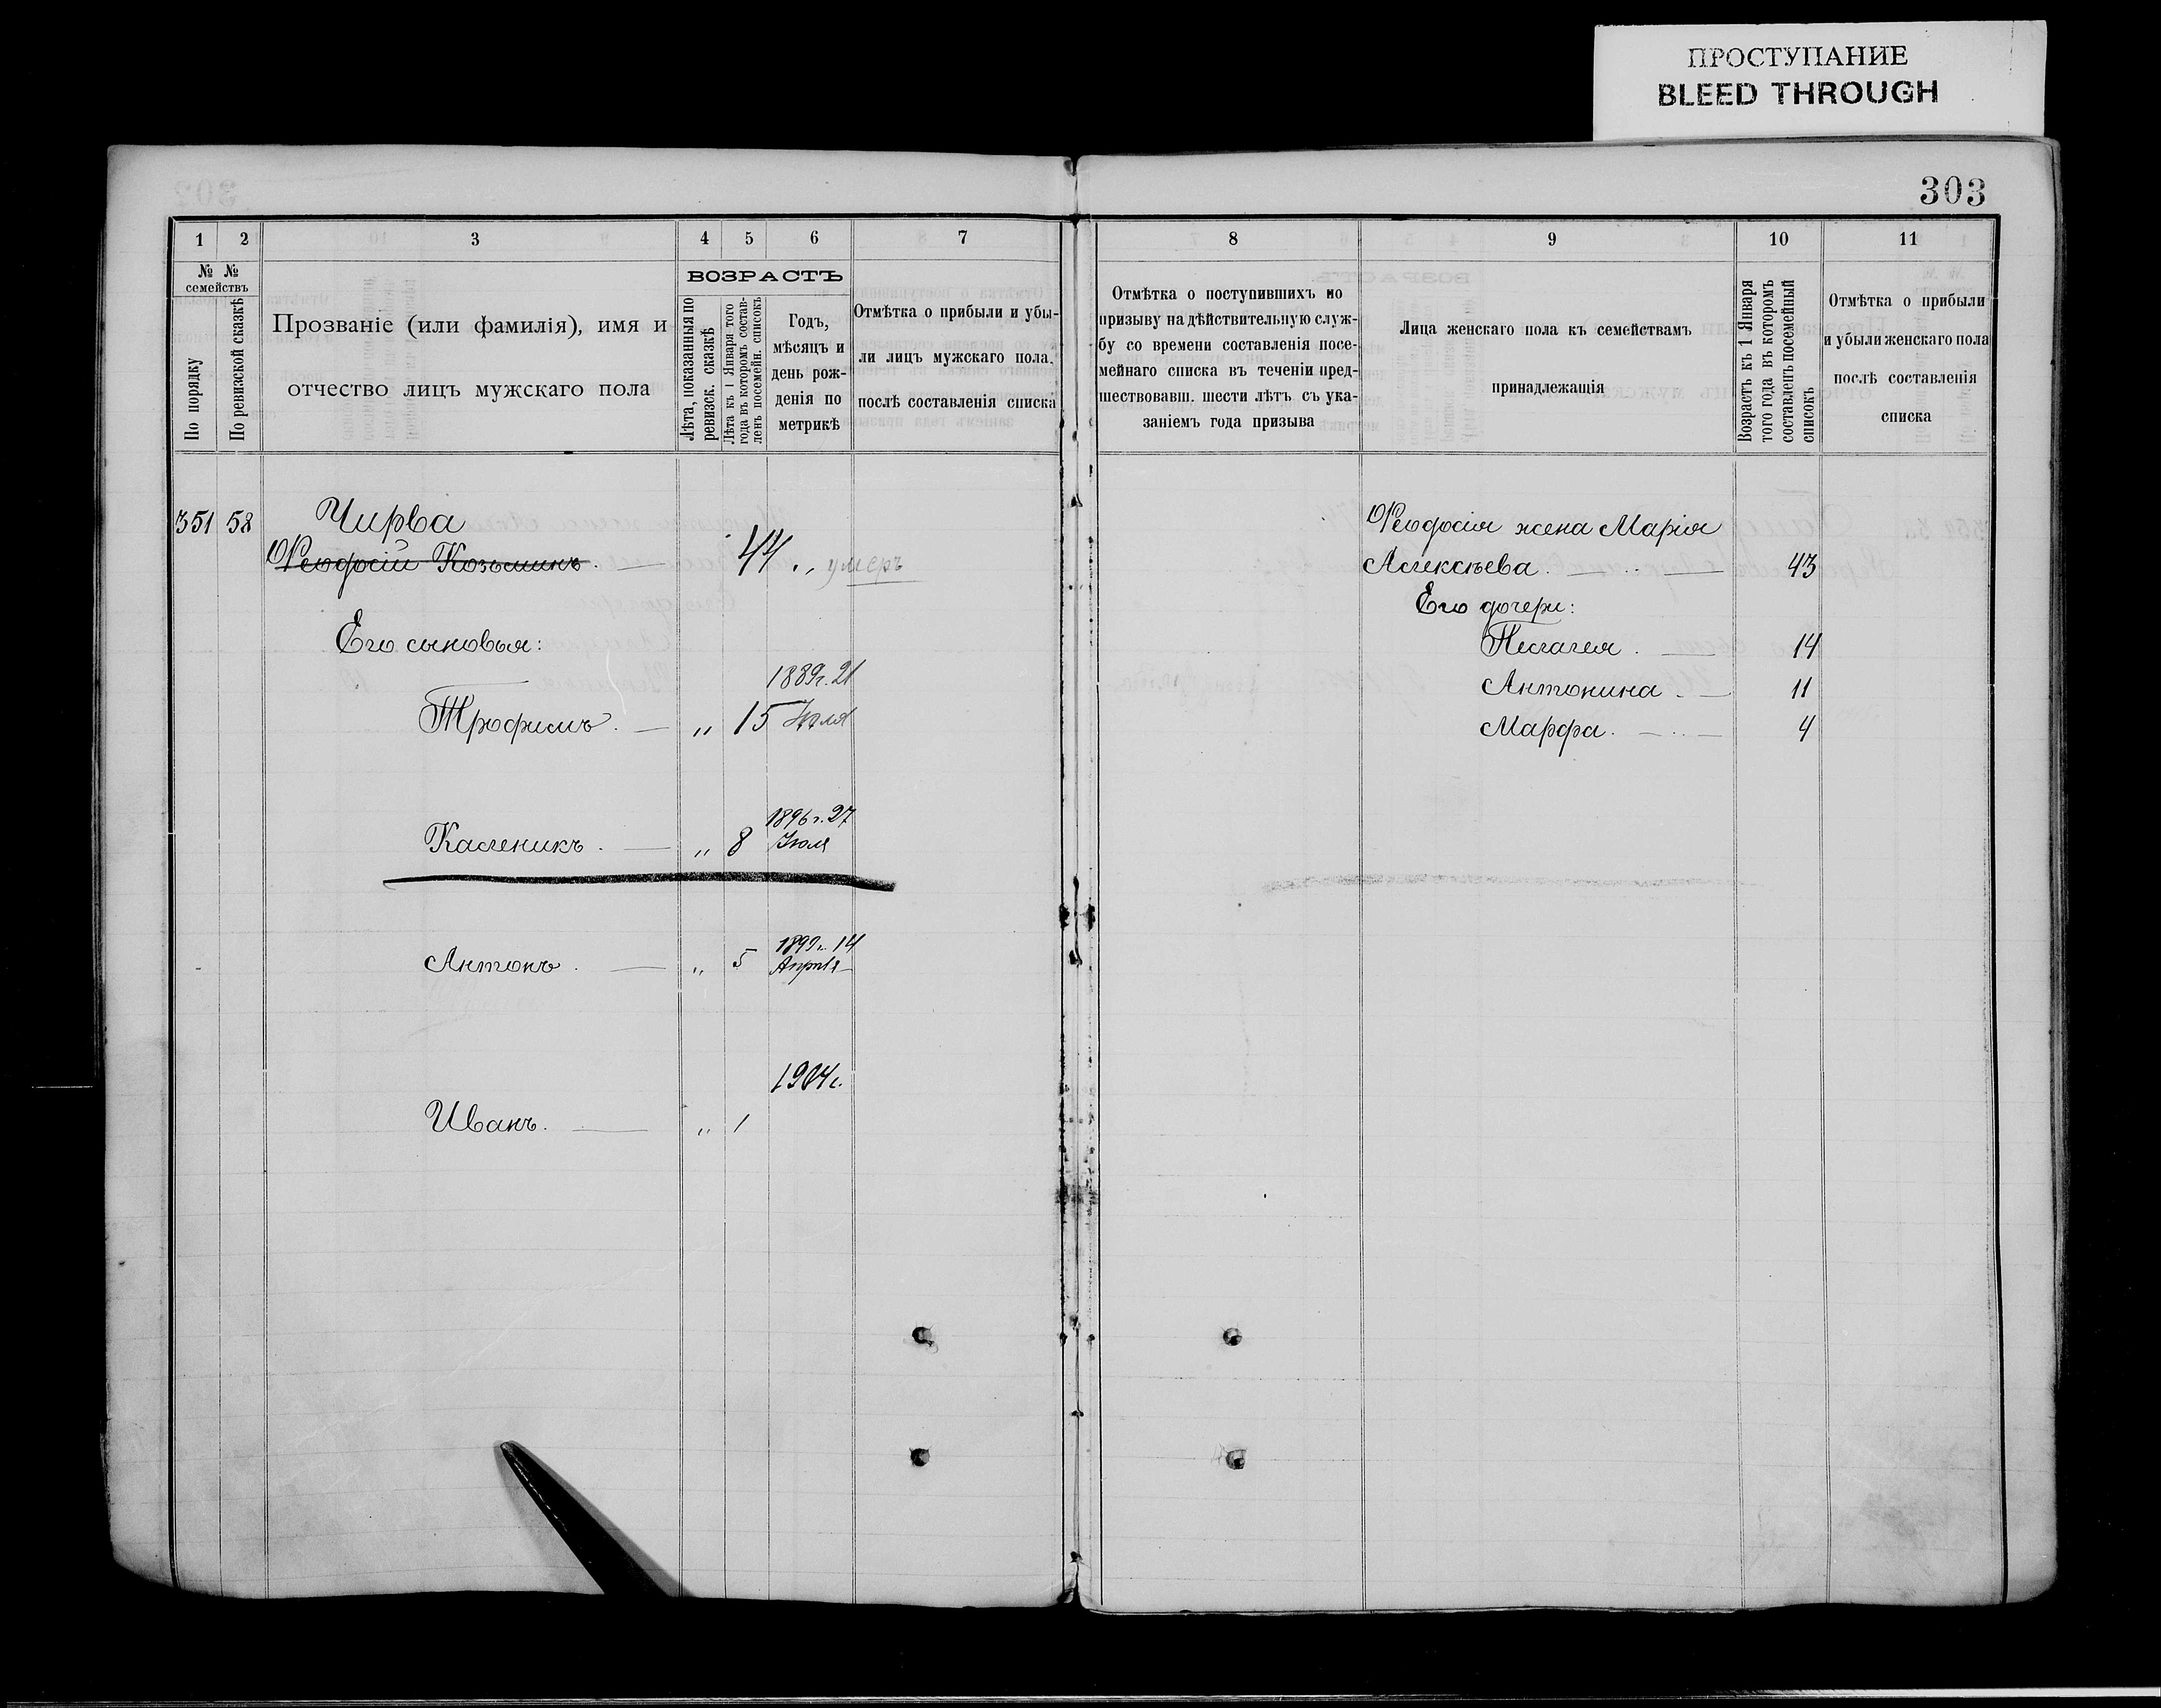 ПРОСТУПАНИЕ
BLEED THROUGH
303
1 2 3 4 5 6 7
№ № семействъ
По порядку
По ревизской сказкѣ
Прозваніе (или фамилія), имя и
отчество лицъ мужскаго пола
ВОЗРАСТЪ
Лѣта, показанныя по
ревизск. сказкѣ
Лѣта къ 1 Января того
года въ которомъ состав-
ленъ посемейн. списокъ
Годъ,
мѣсяцъ и
день рож-
денія по
метрикѣ
Отмѣтка о прибыли и убы-
ли лицъ мужскаго пола,
послѣ составленія списка
351 58 Чирва
Ѳеодосій Козьминъ. 44 „ умеръ
Его сыновья:
1889г. 21
Трофимъ. „ 15 Іюля
1896г. 27
Каленикъ. „ 8 Іюля
1899г. 14
Антонъ. „ 5 Апрѣля
1904г.
Иванъ. „ 1
8 9 10 11
Отмѣтка о поступившихъ по
призыву на дѣйствительную служ-
бу со времени составленія посе-
мейнаго списка въ теченіи пред-
шествовавш. шести лѣтъ съ ука-
заніемъ года призыва
Лица женскаго пола къ семействамъ
принадлежащія
Возрастъ къ 1 Января
того года въ которомъ
составленъ посемейный
списокъ
Отмѣтка о прибыли
и убыли женскаго пола
послѣ составленія
списка
Ѳеодосія жена Марія
Алексѣева. 43
Его дочери:
Пелагея. 14
Антонина 11
Марфа. 4